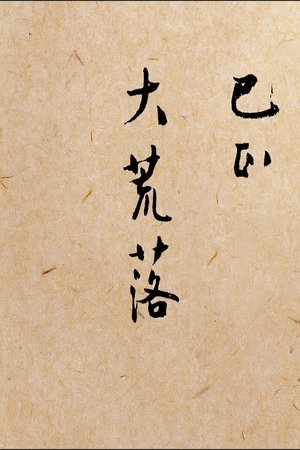 巳
大荒落